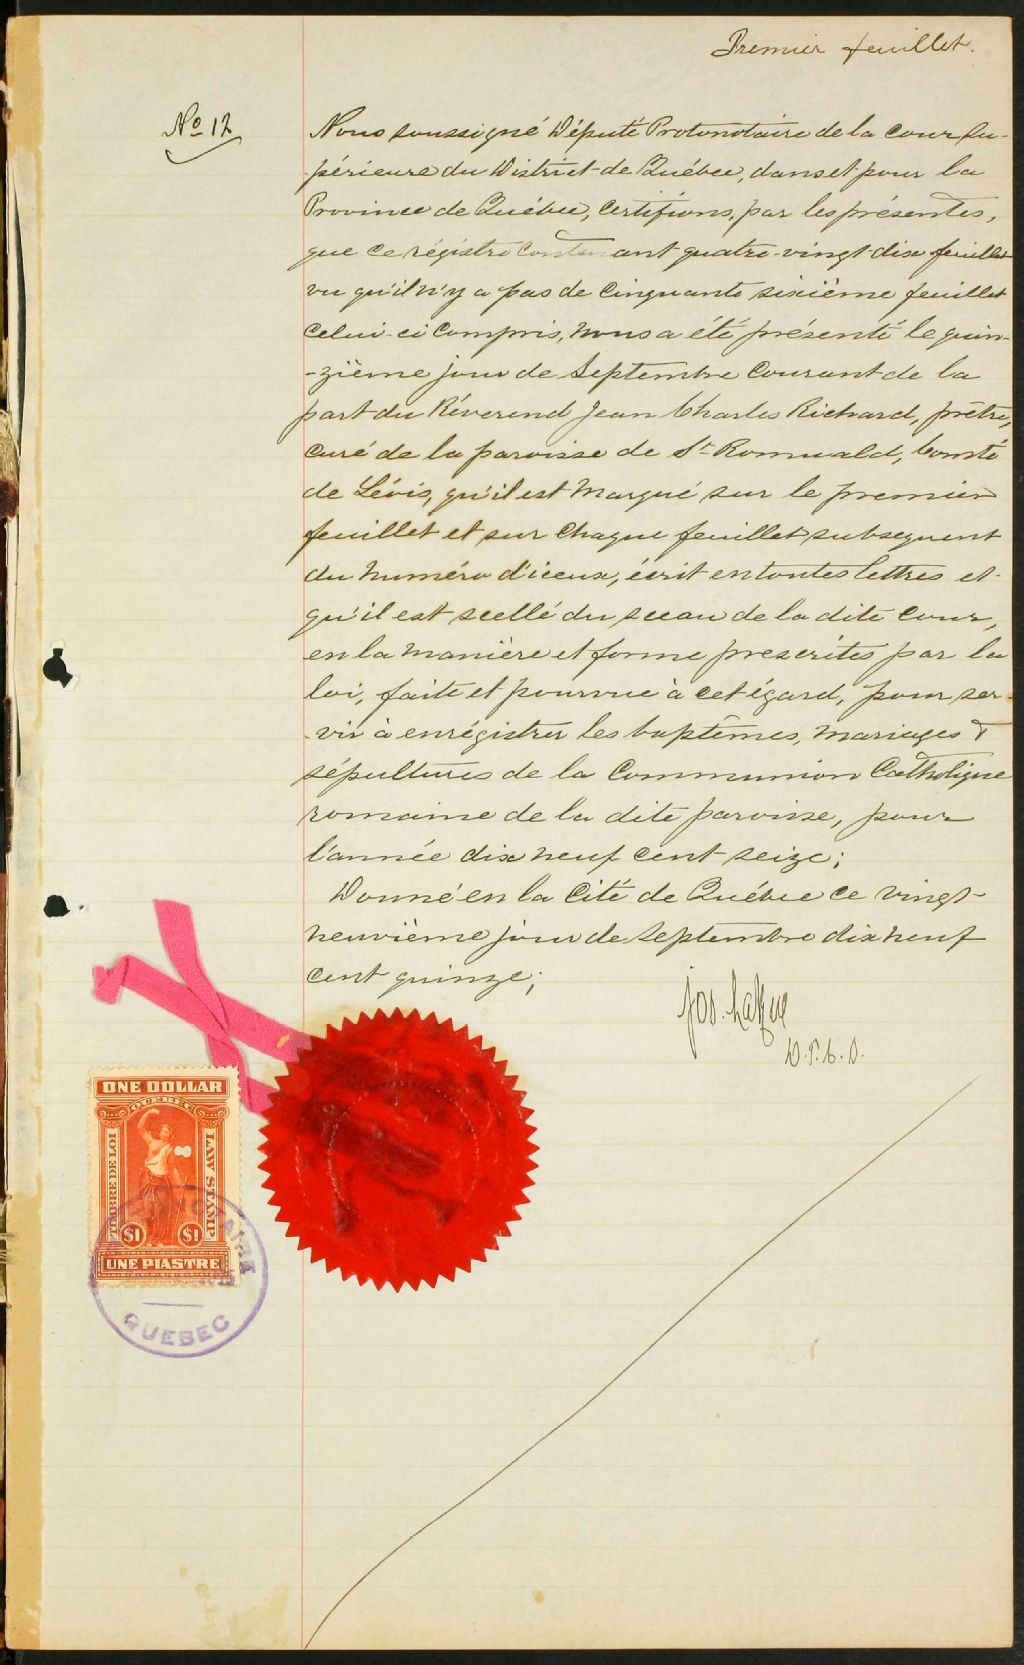 Premier feuillet.
No 12
Nous soussigné Député Protonotaire de la Cour Su-
-périeure du District de Québec, dans et pour la
Province de Québec, certifions, par les présentes,
que ce régistre contenant quatre-vingt-dix feuillets
vu qu'il n'y a pas de cinquante sixième feuillet
celui-ci compris, nous a été présenté le quin-
-zième jour de Septembre courant de la
part du Réverend Jean Charles Richard, prêtre,
curé de la paroisse de St Romuald, Comté
de Lévis, qu'il est marqué sur le premier
feuillet et sur chaque feuillet subsequent
du numéro d'iceux, écrit en toutes lettres et
qu'il est scellé du sceau de la dite Cour,
en la manière et forme prescrites par la
loi, faite et pourvue à cet égard, pour ser-
-vir à enrégistrer les baptêmes, mariages &
sépultures de la Communion Catholique
romaine de la dite paroisse, pour
l'année dix neuf cent seize;
Donné en la Cité de Québec ce vingt-
neuvième jour de Septembre dix neuf
cent quinze;
Jos. LaRue
D.P.C.S.
ONE DOLLAR
QUEBEC
TIMBRE DE LOI
LAW STAMP
$1 $1
UNE PIASTRE
QUEBEC